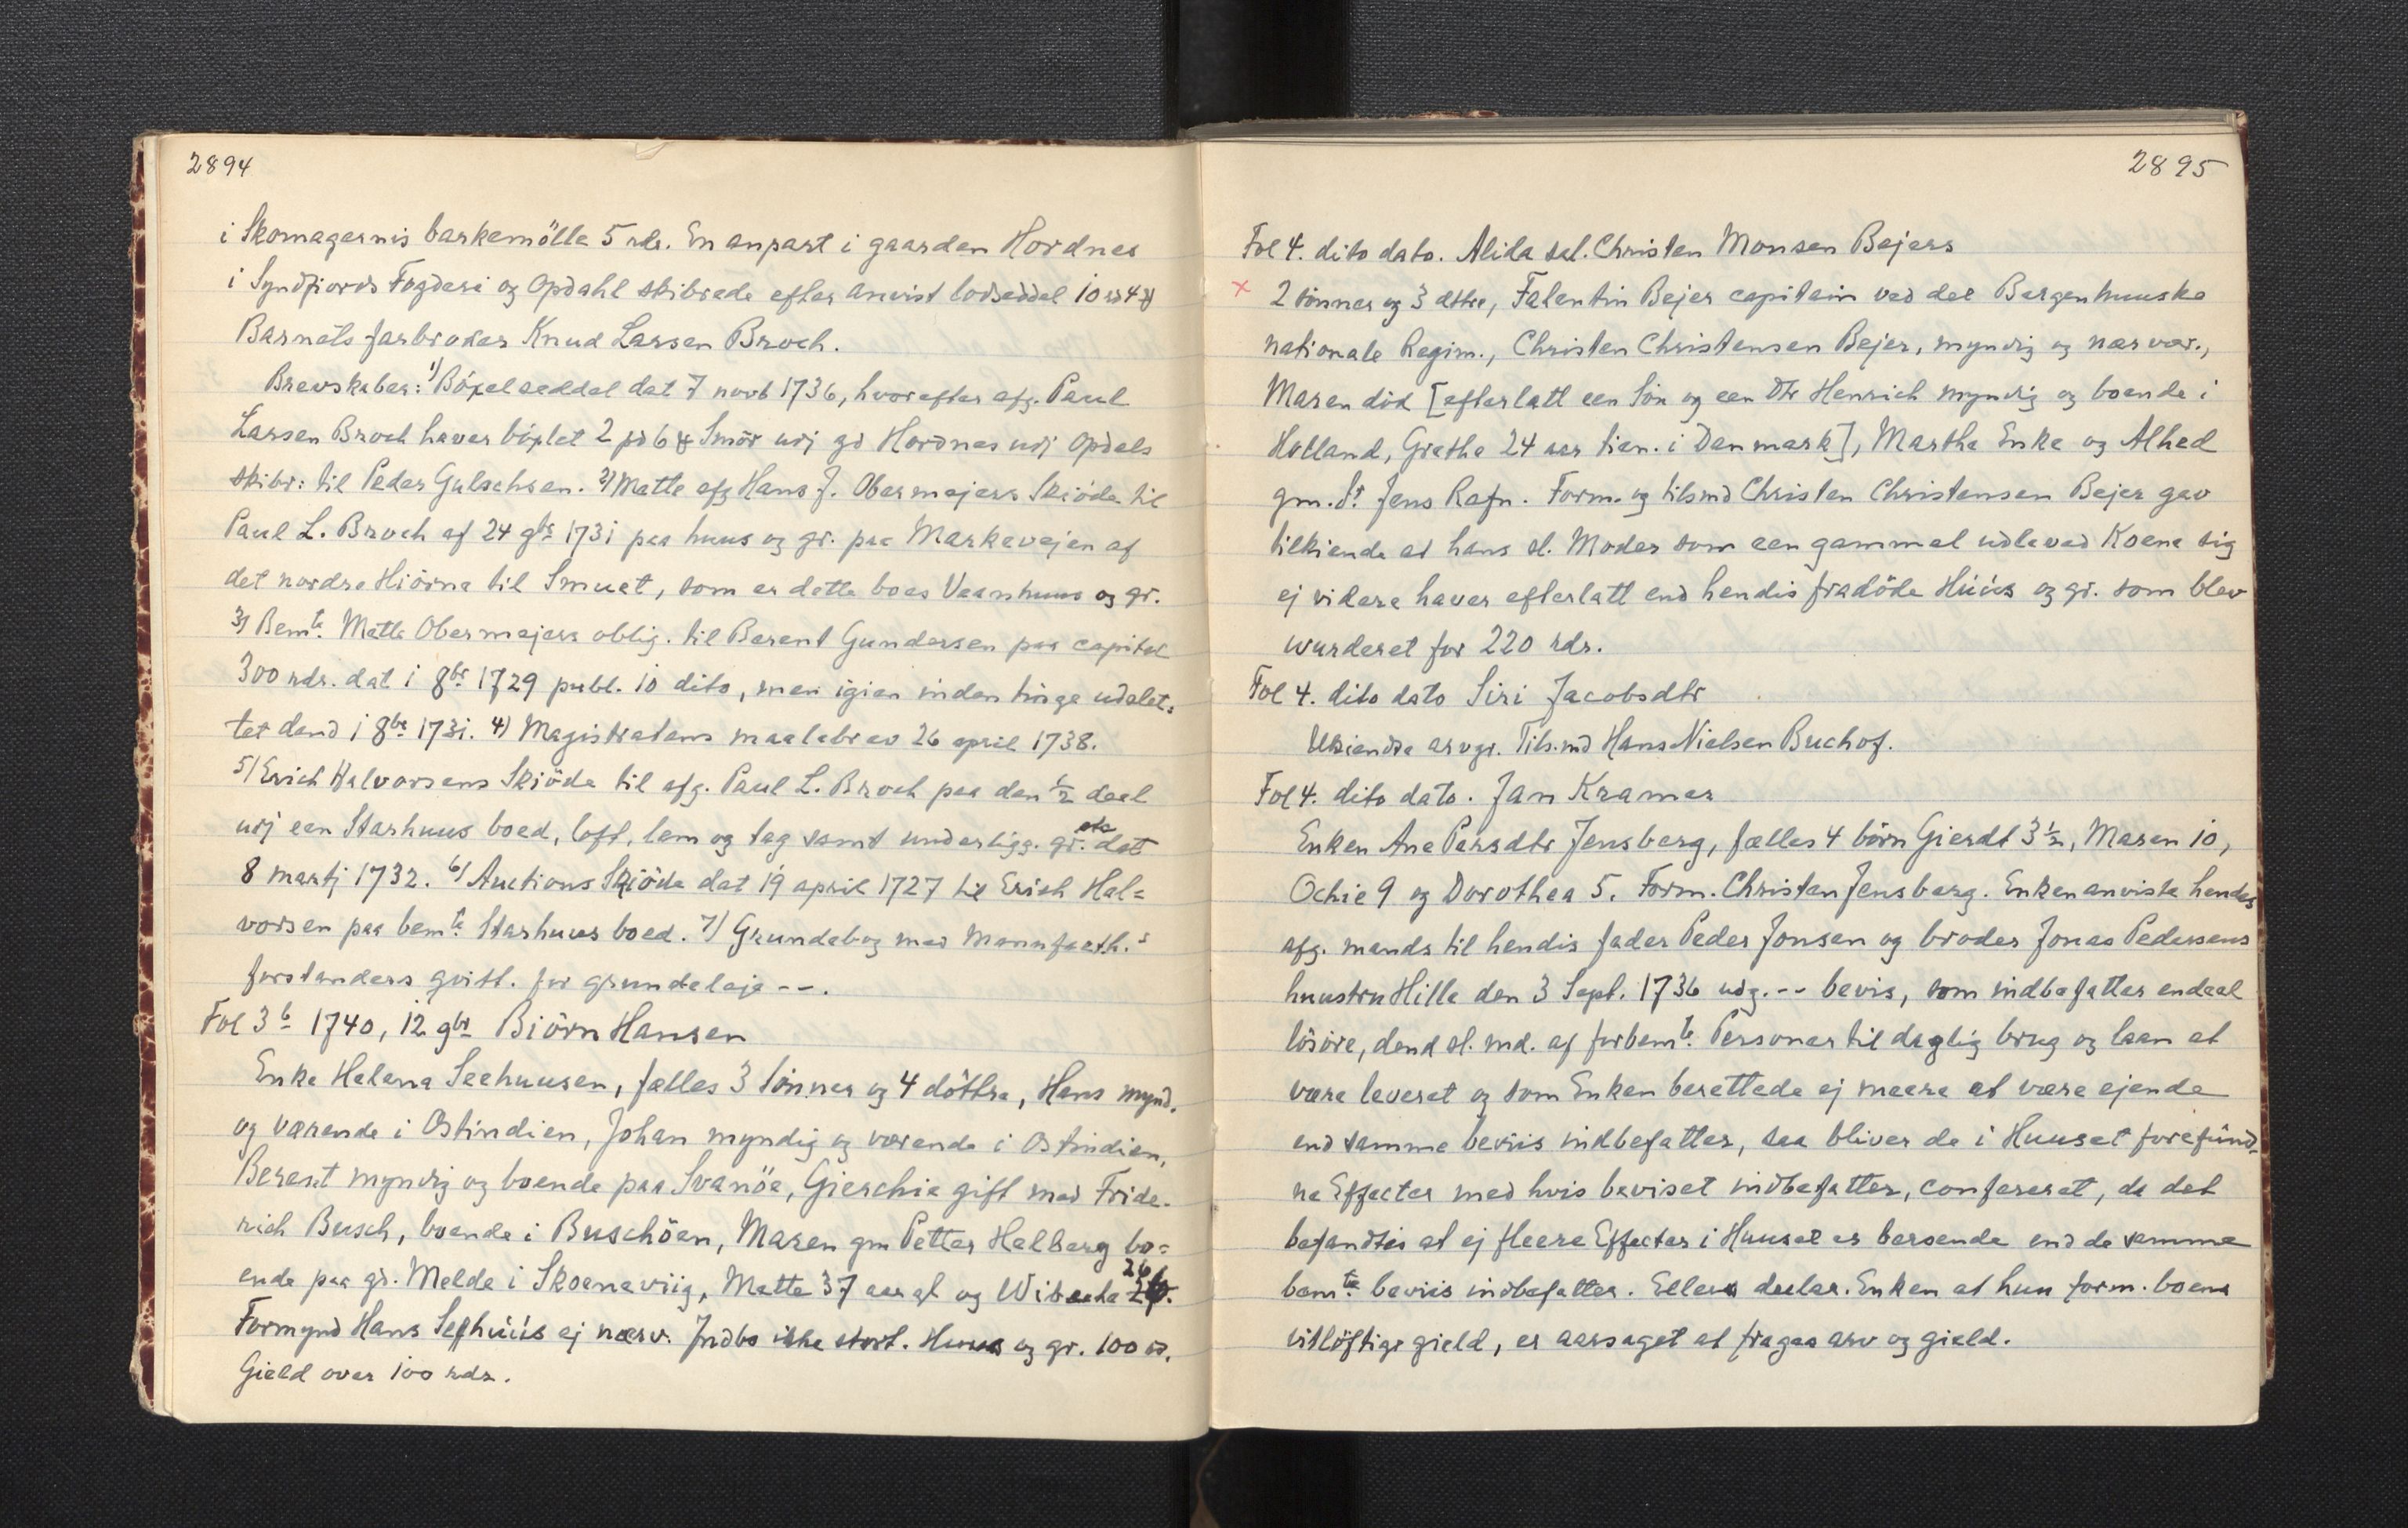 2894
i Skomagernis barkemölle 5 rdr. En anpart i gaarden Hordnes
i Syndfiords Fogderi og Opdahl skibrede efter anvist lodseddel 10 rd 4 ß
Barnets farbroder Knud Larsen Broch.
Brevskaber: 1) Böxelseddel dat 7 novb 1736, hvorefter afg. Paul
Larsen Broch haver böxlet 2 pd 6 ℔ Smör udj gd Hordnes udj Opdals
skibr: til Peder Gulachsen. 2) Mette afg Hans J. Obermejers Skiöde til
Paul L. Broch af 24 9br 1731 paa huus og gr. paa Markevejen af
det nordre Hiörne til Smuet, som er dette boes Vaanhuus og gr.
3) Bemte Mette Obermejers oblig. til Berent Gundersen paa capital
300 rdr. dat 1 8br 1729 publ. 10 dito, men igien inden tinge udslet-
tet dend 1 8br 1731. 4) Magistratens maalebrev 26 april 1738.
5) Erich Halvorsens Skiöde til afg. Paul L. Broch paa den ½ deel
udj een Starhuus boed, loft, lem og tag samt underligg. gr. etc dat
8 martj 1732. 6) Auctions Skiöde dat 19 april 1727 til Erich Hal=
vorsen paa bemte Starhuus boed. 7) Grundebog med Mannfaeth.s
forstanders qvitt. for grundeleje --.
Fol 3b 1740, 12 9br Biörn Hansen
Enke Helena Seehuusen, fælles 3 Sönner og 4 döttre, Hans mynd.
og værende i Ostindien, Johan myndig og værende i Ostindien,
Berent myndig og boende paa Svanöe, Gierchie gift med Fride-
rich Busch, boende i Buschöen, Maren gm Petter Helberg bo=
ende paa gd. Melde i Skoeneviig, Mette 37 aar gl og Wibeche 26.
Formynd Hans Seehuus ej nærv. Indbo ikke stort. Huus og gr. 100 rd.
Gield over 100 rdr.
2895
Fol 4. dito dato. Alida sal. Christen Monsen Bejers
x 2 sönner og 3 dttre, Falentin Bejer capitain ved det Bergenhuuske
nationale Regim., Christen Christensen Bejer, myndig og nærvær.,
Maren död [efterlatt een Sön og een Dtr Henrich myndig og boende i
Holland, Grethe 24 aar tien. i Danmark], Martha Enke og Alhed
gm. Sr Jens Rafn. Form. og tilsmd Christen Christensen Bejer gav
tilkiende at hans sl. Moder som een gammel udleved Koene sig
ej videre haver efterlatt end hendis fradöde Húús og gr. som blev
wurderet for 220 rdr.
Fol 4. dito dato Siri Jacobsdtr
Ukiendte arvgr. Tils.md Hans Nielsen Buchof.
Fol 4. dito dato. Jan Kramer
Enken Ane Persdtr Jensberg, fælles 4 börn Gierdt 3½, Maren 10,
Ochie 9 og Dorothea 5. Form. Christen Jensberg. Enken anviste hendes
afg. mands til hendis fader Peder Jonsen og broder Jonas Pedersens
huustru Hille den 3 Sept. 1736 udg. -- bevis, som indbefatter endeel
lösöre, dend sl. md. af forbemte Personer til daglig brug og laan at
være leveret og som Enken berettede ej meere at være ejende
end samme beviis indbefatter, saa bliver de i Huuset forefund-
ne Effecter med hvis beviset indbefatter, confereret, da det
befandtis at ej fleere Effecter i Huuset er beroende end de samme
bemte beviis indbefatter. Ellers declar. Enken at hun form. boens
vitlöftige gield, er aarsaget at fragaa arv og gield.